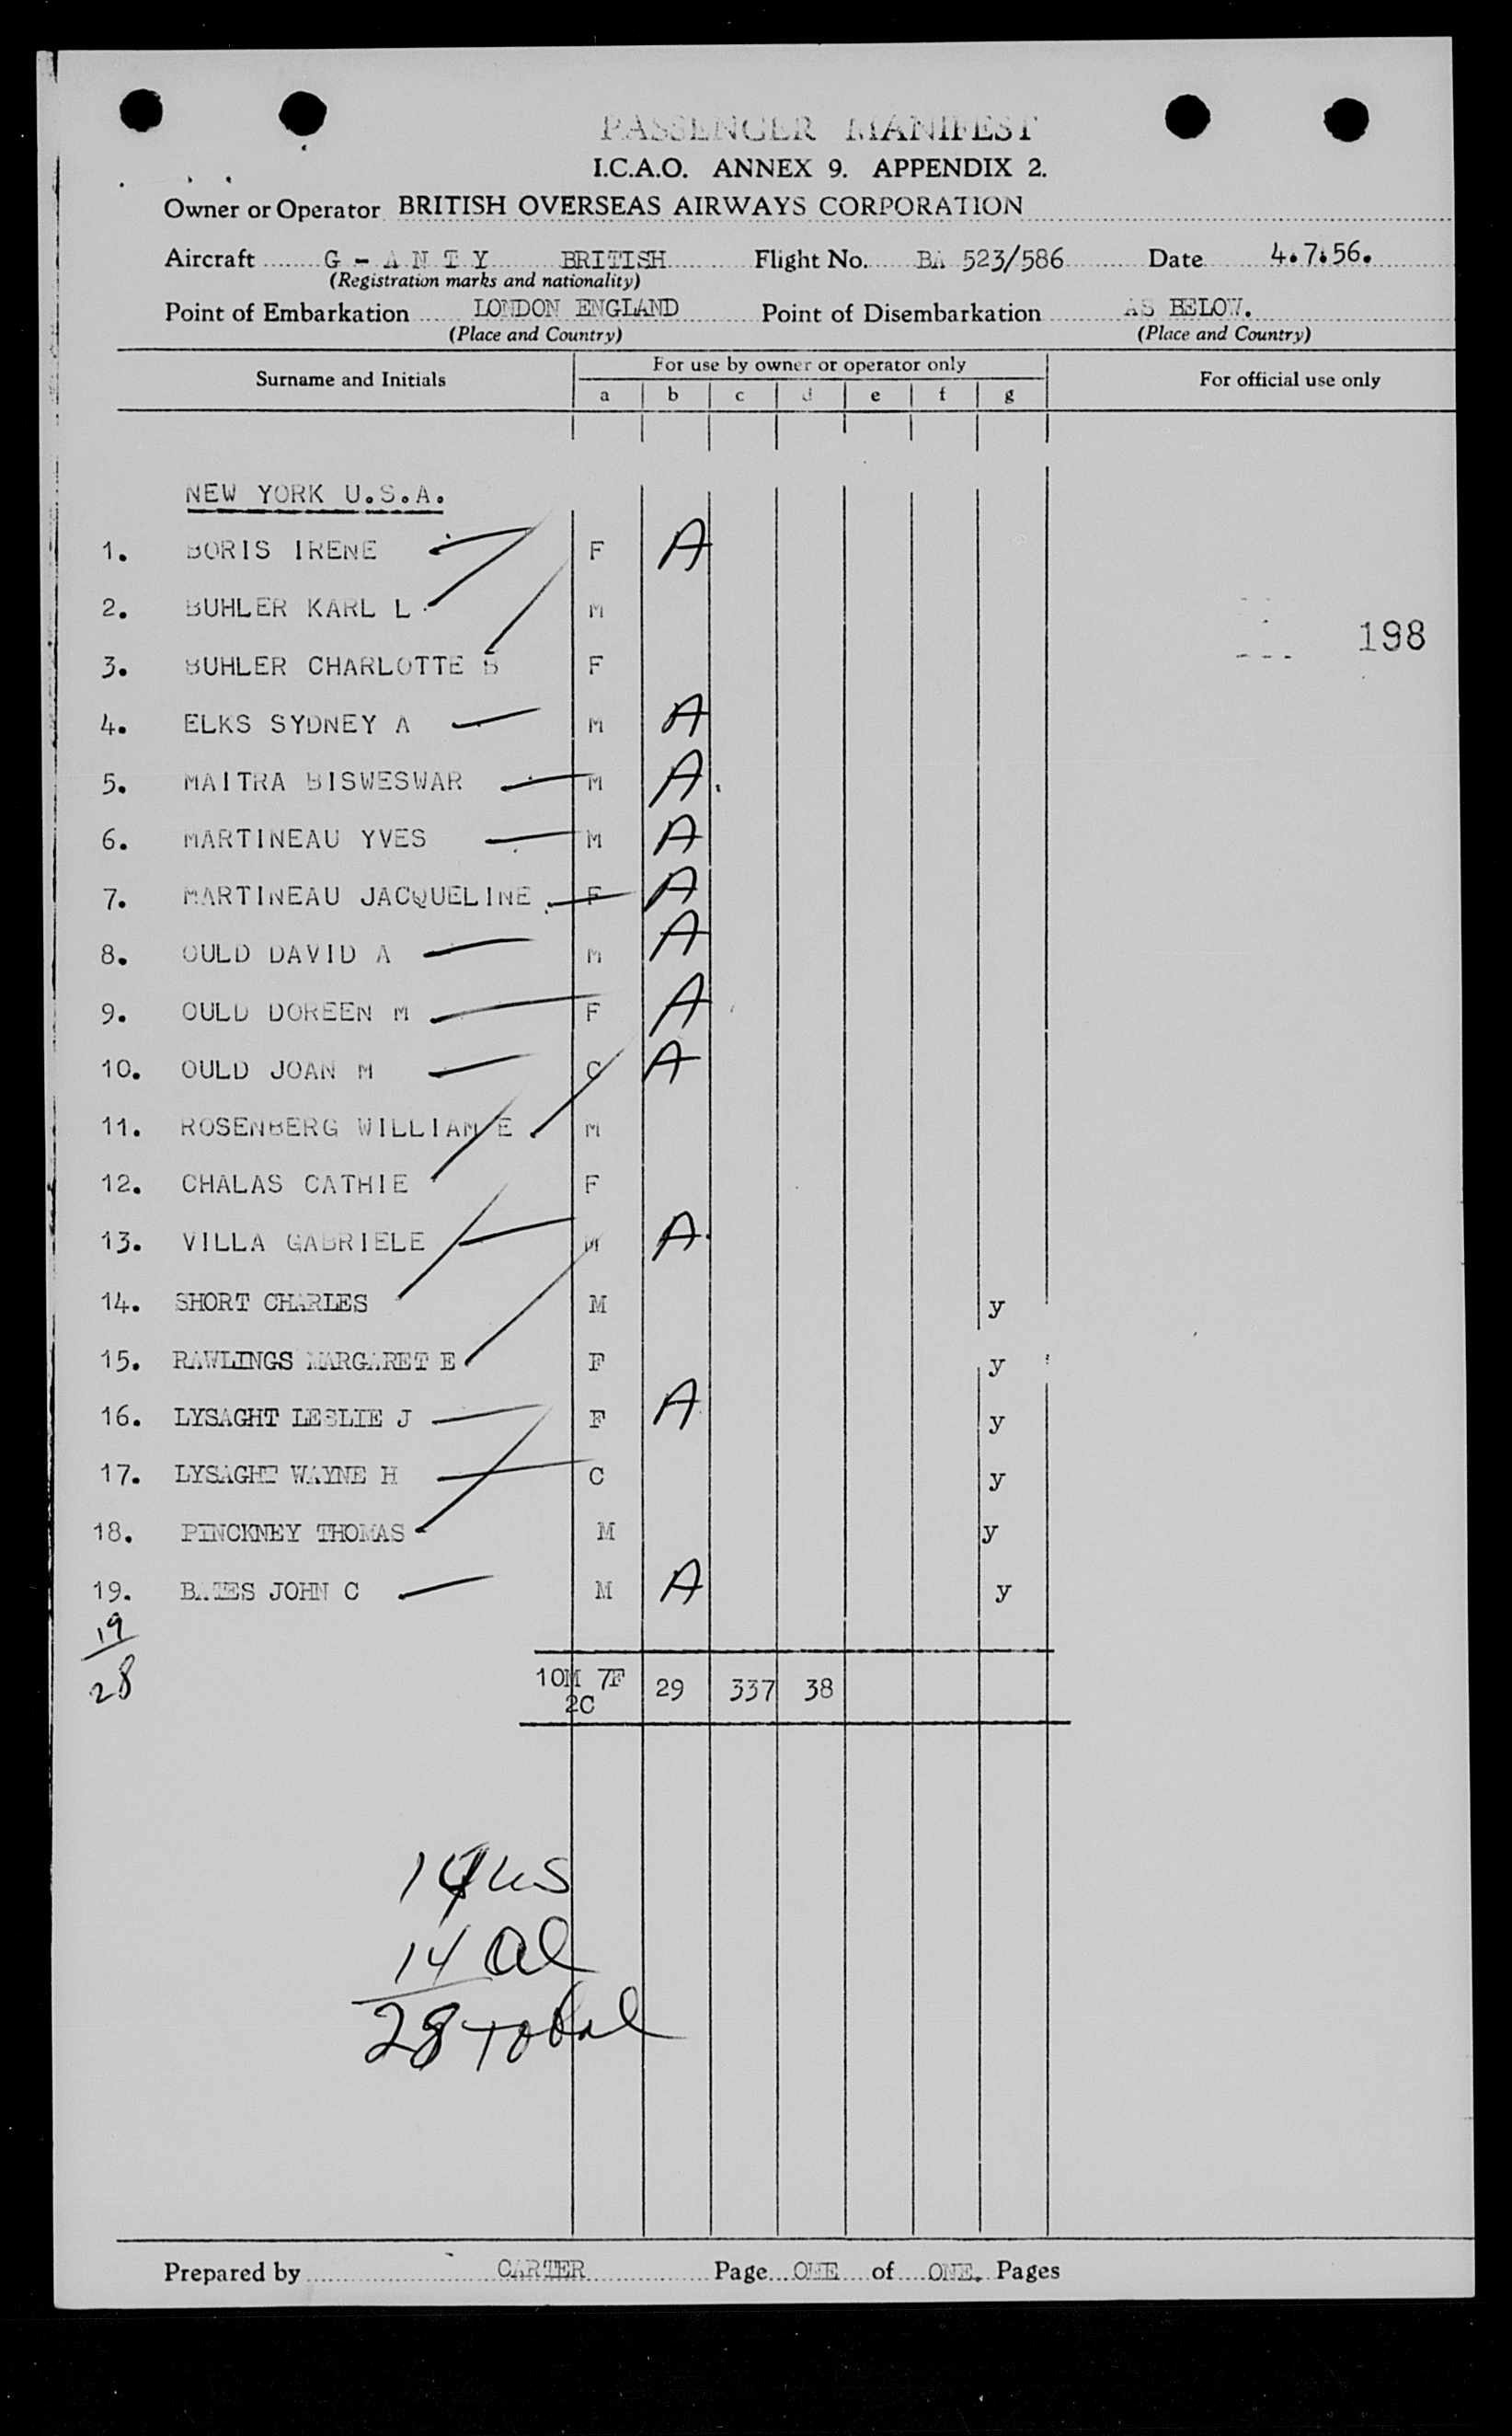 PASSENGER MANIFEST
I.C.A.O. ANNEX 9. APPENDIX 2.
Owner or Operator BRITISH OVERSEAS AIRWAYS CORPORATION
Aircraft G - A N T Y BRITISH Flight No. BA 523/586 Date 4.7.56.
(Registration marks and nationality)
Point of Embarkation LONDON ENGLAND Point of Disembarkation AS BELOW.
(Place and Country) (Place and Country)
Surname and Initials For use by owner or operator only For official use only
a b c d e f g
NEW YORK U.S.A.
1. BORIS IRENE F A
2. BUHLER KARL L M
198
3. BUHLER CHARLOTTE B F
4. ELKS SYDNEY A M A
5. MAITRA BISWESWAR M A
6. MARTINEAU YVES M A
7. MARTINEAU JACQUELINE F A
8. OULD DAVID A M A
9. OULD DOREEN M F A
10. OULD JOAN M C A
11. ROSENBERG WILLIAM E M
12. CHALAS CATHIE F
13. VILLA GABRIELE M A
14. SHORT CHARLES M y
15. RAWLINGS MARGARET E F y
16. LYSAGHT LESLIE J F A y
17. LYSAGHT WAYNE H C y
18. PINCKNEY THOMAS M y
19. BATES JOHN C M A y
19
28
10M 7F 29 337 38
2C
14 US
14 al
28 total
Prepared by CARTER Page ONE of ONE. Pages